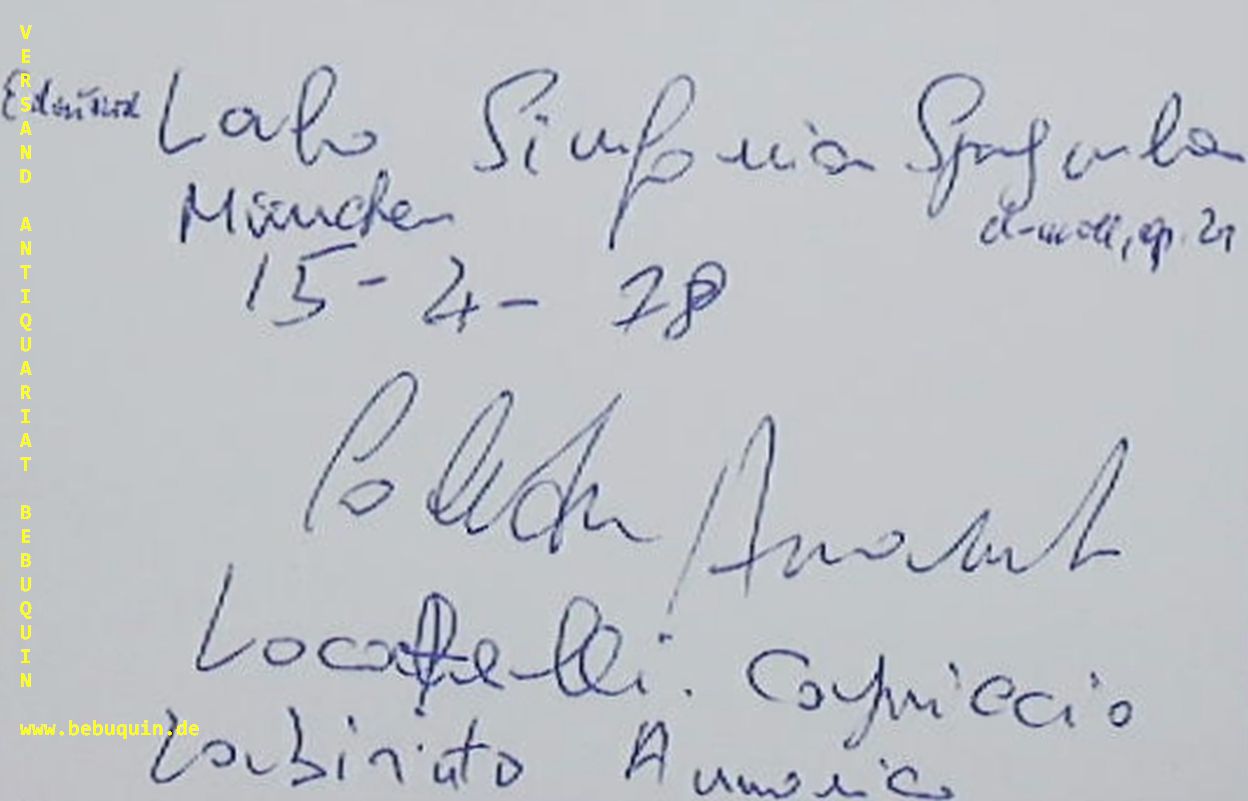 VERSAND ANTIQUARIAT BEBUQUIN
Edouard Lalo Sinfonia Spagnola
d-moll, op. 21
München
15-4-78
Locatelli. Capriccio
www.bebuquin.de
Labirinto Armonico